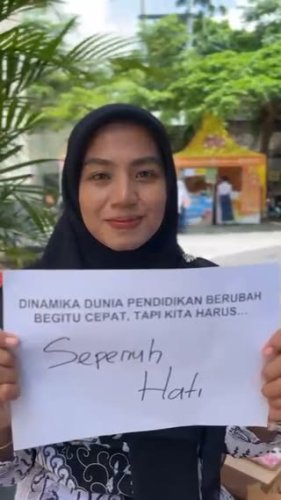 DINAMIKA DUNIA PENDIDIKAN BERUBAH
BEGITU CEPAT, TAPI KITA HARUS...
Sepenuh
Hati